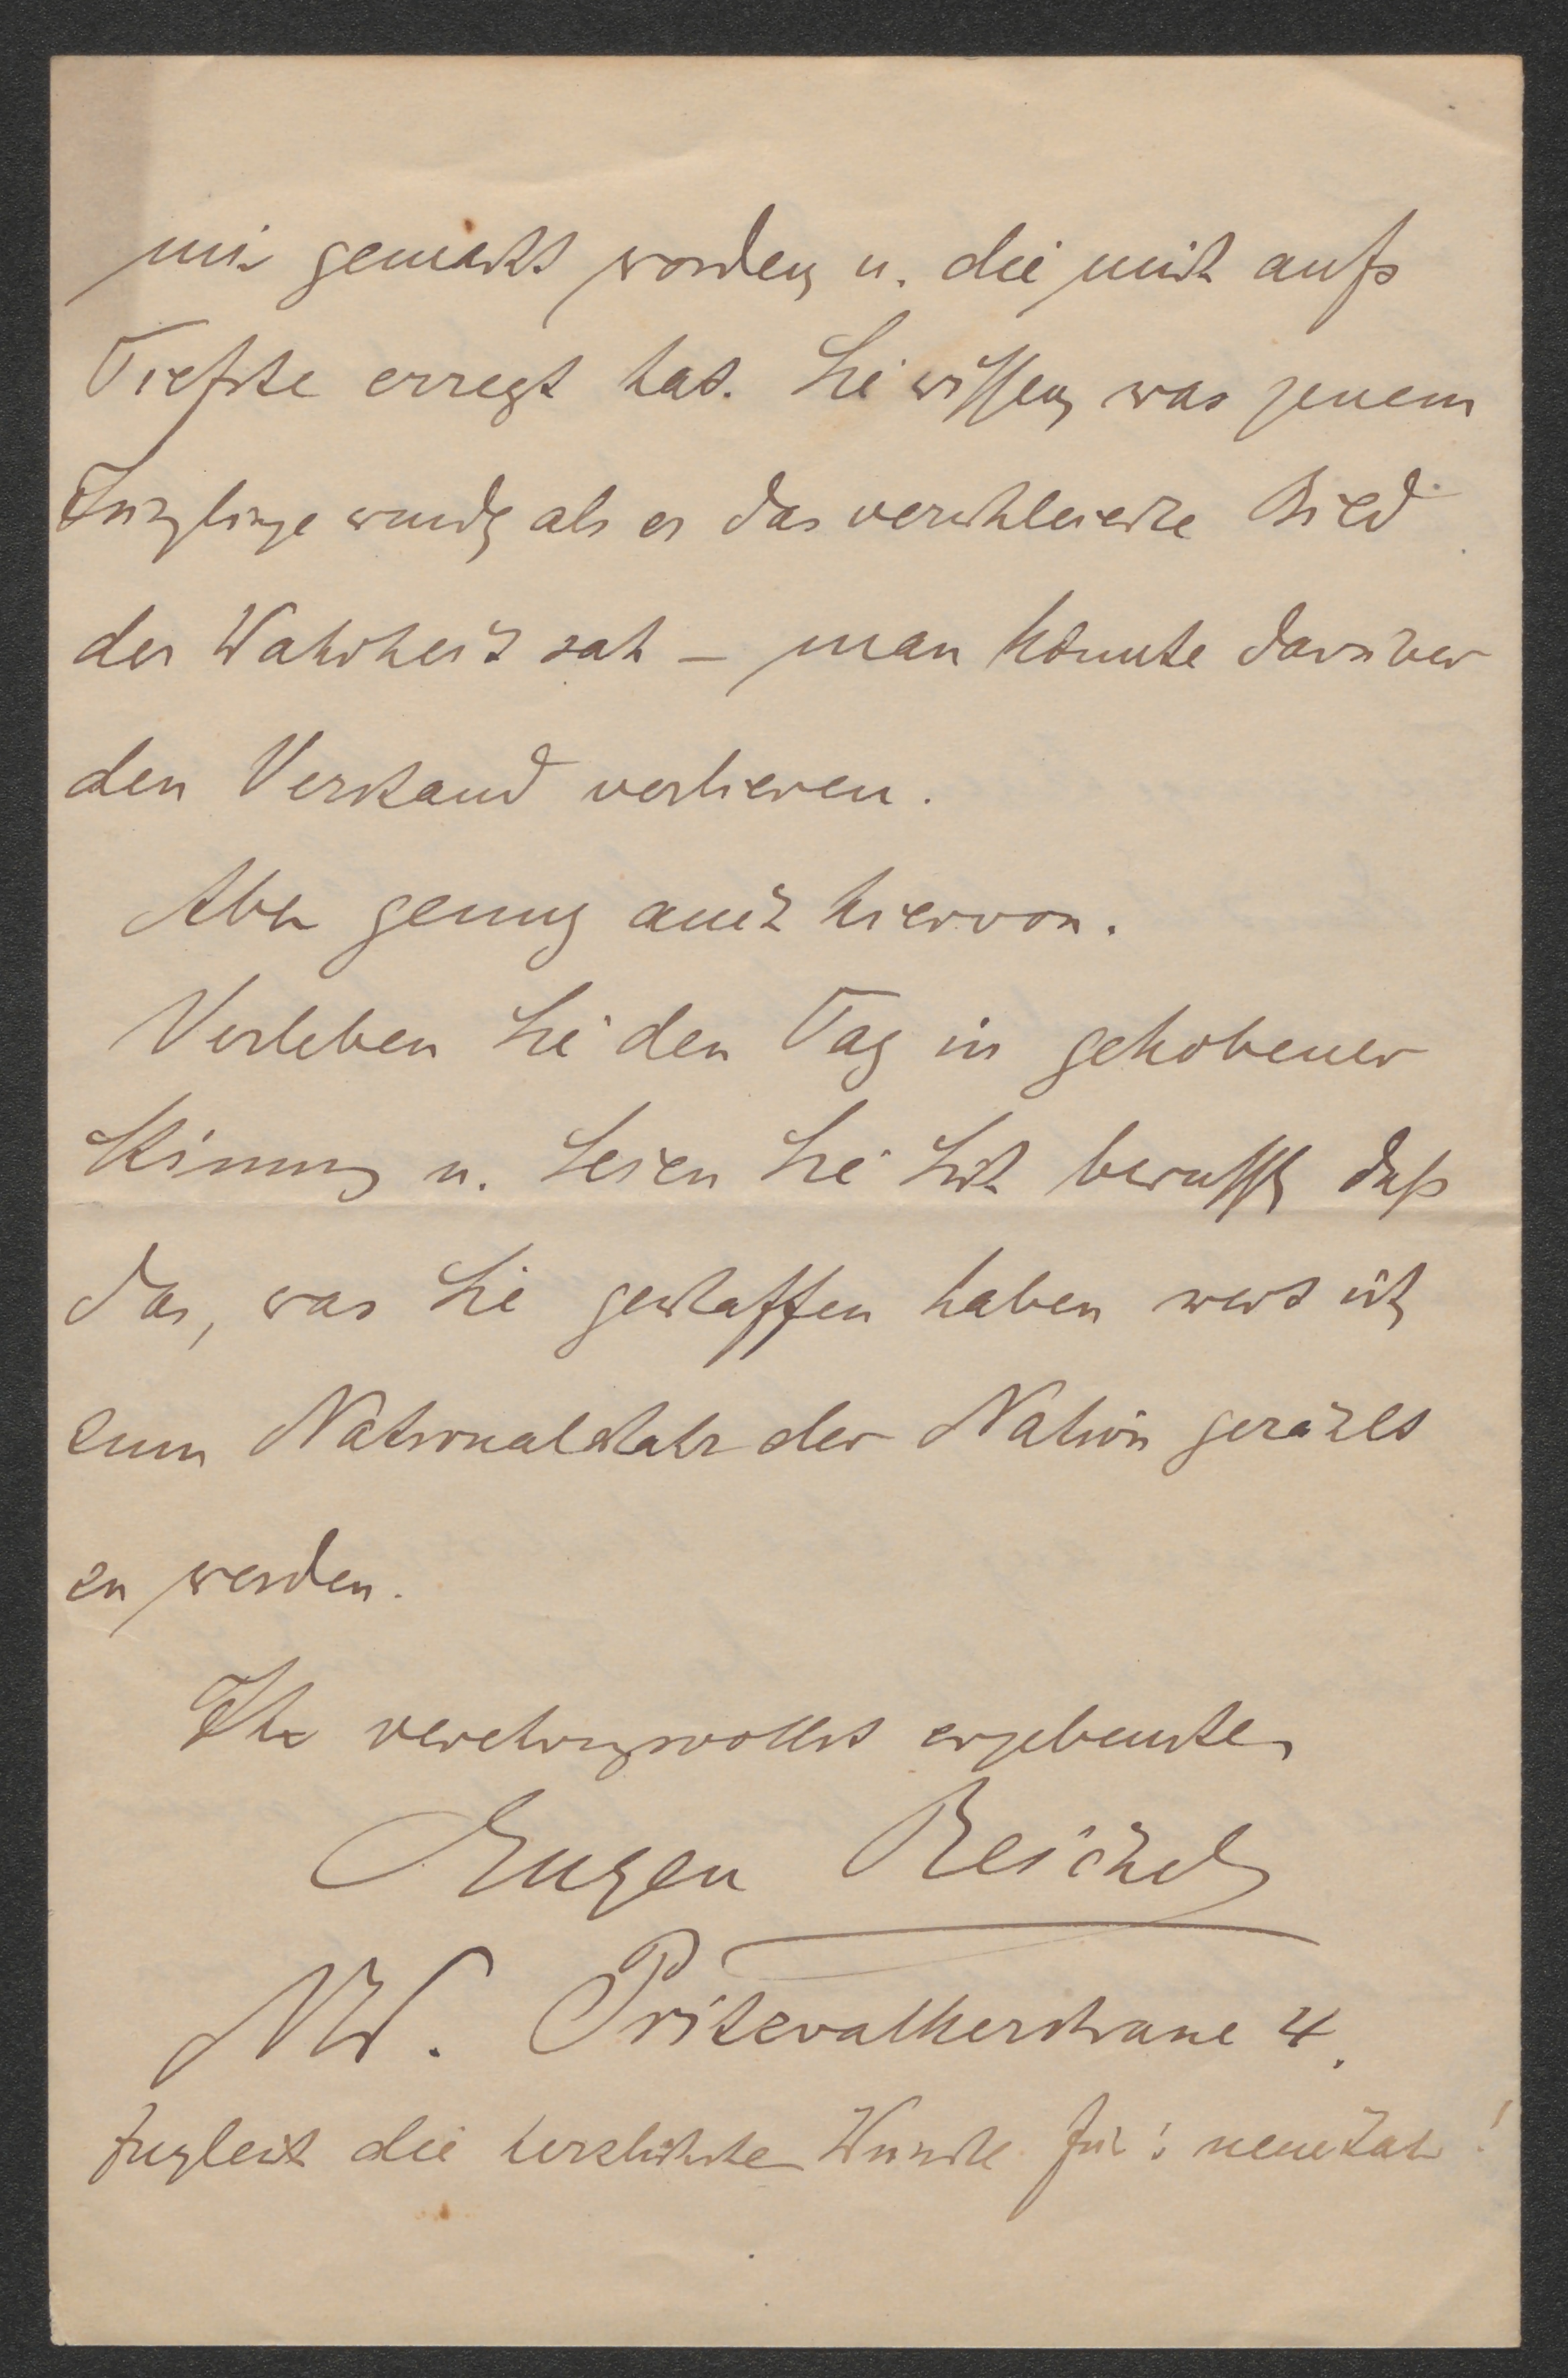 mir gemacht worden u. die mich aufs
Tiefste erregt hat. Sie wissen, was jenem
Jünglinge wurde, als er das verschleierte Bild
der Wahrheit sah – man könnte darüber
den Verstand verlieren.
Aber genug auch hiervon.
Verleben Sie den Tag in gehobener
Stimmung u. Seien Sie Sich bewusst, daß
das, was Sie geschaffen haben wert ist,
zum Nationalschatz der Nation gezählt
zu werden.
Ihr verehrungsvollst ergebenster
Eugen Reichel
NW. Pritzwalkerstrasse 4.
Zugleich die herzlichsten Wünsche für's neue Jahr!